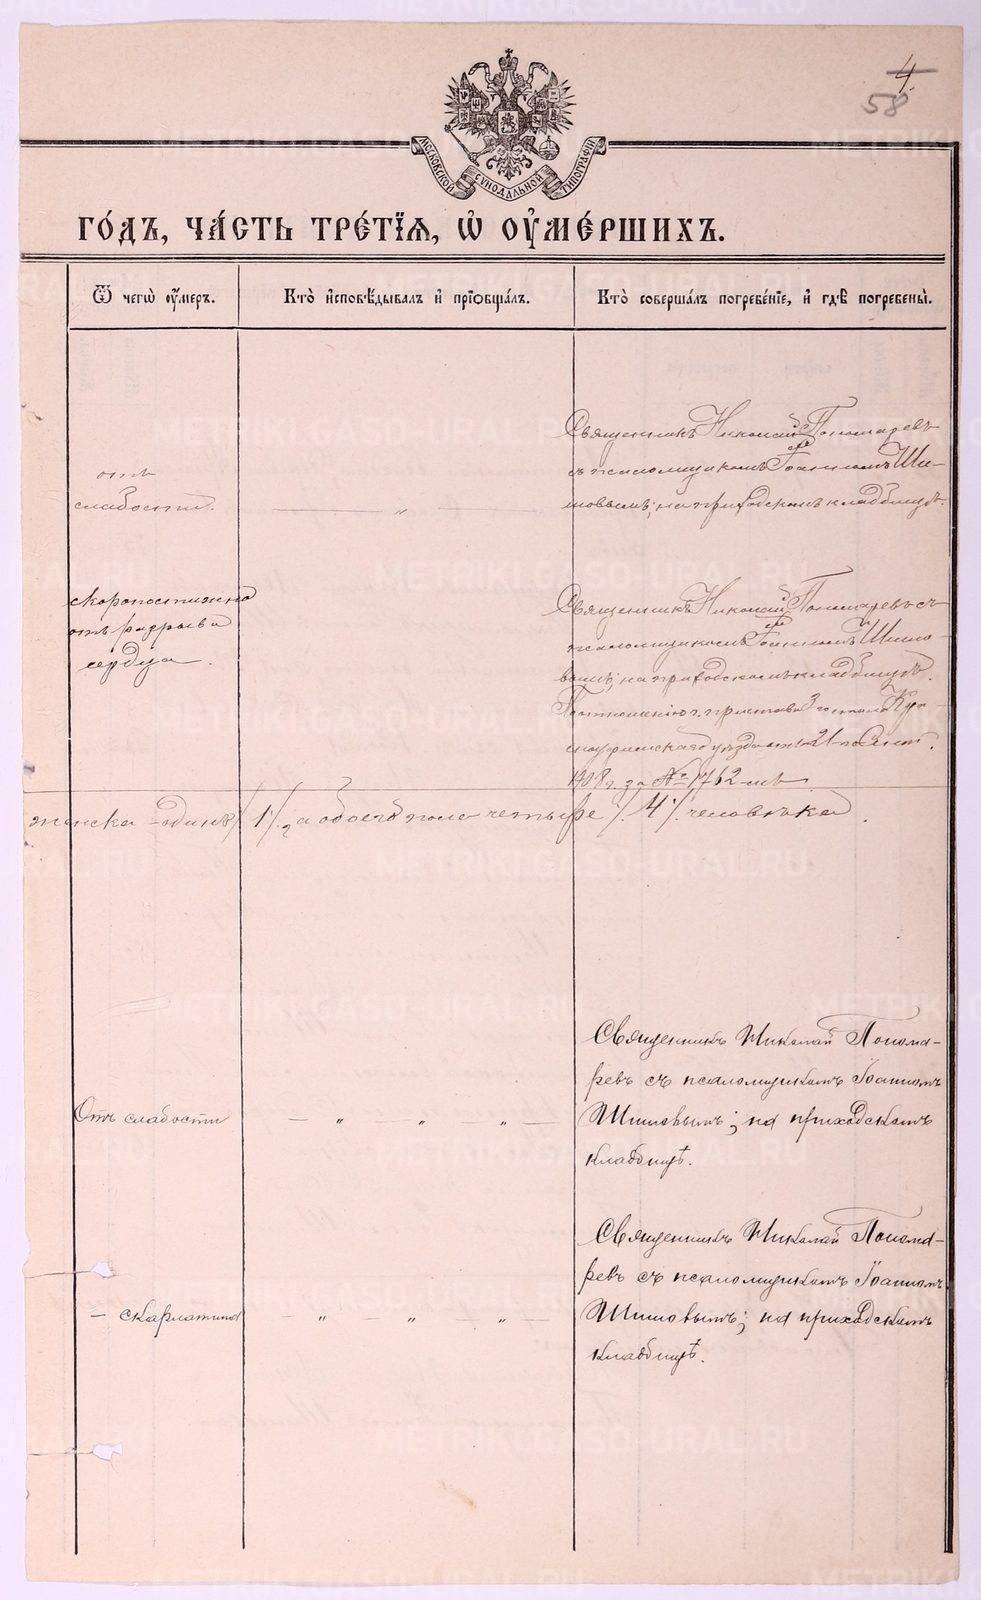 4
58
МОСКОВСКОЙ СѴНОДАЛЬНОЙ ТИПОГРАФІИ
ГО́ДЪ, ЧА́СТЬ ТРЕ́ТІѦ, Ѡ҆ ОУ҆МЕ́РШИХЪ.
Ѿ чегѡ̀ оу҆́меръ.
Кто̀ и҆сповѣ́дывалъ и҆ прїѻбща́лъ.
Кто̀ соверша́лъ погребе́нїе, и҆ гдѣ̀ погребены̀.
отъ
слабости.
— „ —
Священникъ Николай Пономаревъ
съ псаломщикомъ Іоанномъ Ши-
шовымъ; на приходскомъ кладбищѣ.
скоропостижно
отъ разрыва
сердца.
Священникъ Николай Пономаревъ съ
псаломщикомъ Іоанномъ Шишо-
вымъ; на приходскомъ кладбищѣ.
По отношенію г. пристава 3го стана Кра-
сноуфимскаго уѣзда отъ 21го Сент.
1908 г. за № 1762-мъ
женска - одинъ /1/. за обоего пола четыре /. 4 /. человѣка.
Отъ слабости
— „ — „ — „ —
Священникъ Николай Понома-
ревъ съ псаломщикомъ Іоанномъ
Шишовымъ; на приходскомъ
кладбищѣ.
— скарлатины
— „ — „ — „ —
Священникъ Николай Понома-
ревъ съ псаломщикомъ Іоанномъ
Шишовымъ; на приходскомъ
кладбищѣ.
METRIKI.GASO-URAL.RU